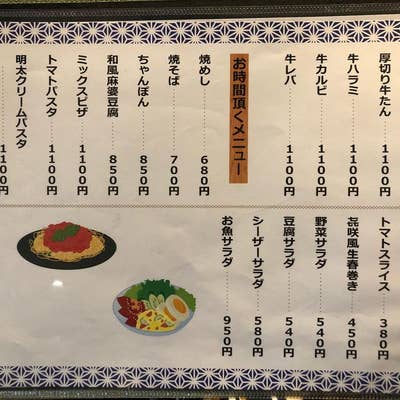 厚切り牛たん 1100円
牛ハラミ 1100円
牛カルビ 1100円
牛レバ 1100円
お時間頂くメニュー
焼めし 680円
焼そば 700円
ちゃんぽん 850円
和風麻婆豆腐 850円
ミックスピザ 1100円
トマトパスタ 1100円
明太クリームパスタ 1100円
トマトスライス 380円
㐂咲風生春巻き 450円
野菜サラダ 540円
豆腐サラダ 540円
シーザーサラダ 580円
お魚サラダ 950円